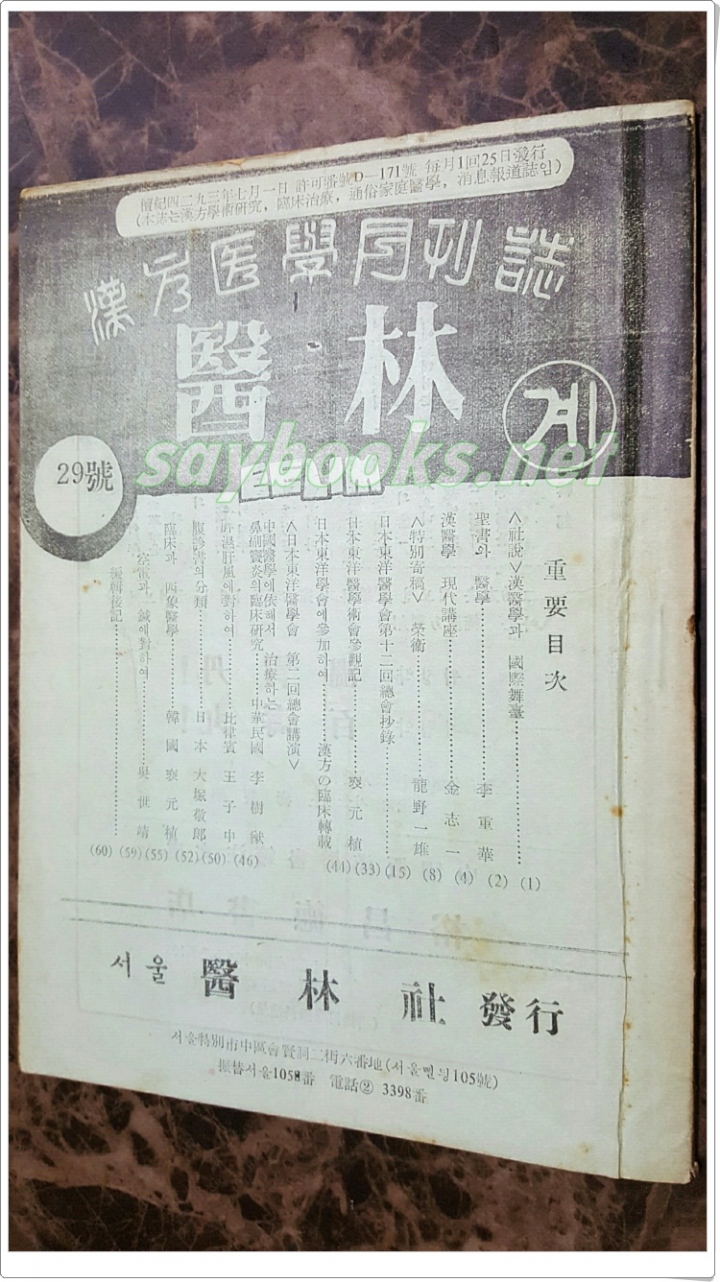 檀紀四二九三年七月一日 許可番號D—171號 每月1回25日發行
(本誌는漢方學術研究, 臨床治驗, 通俗家庭醫學, 消息報道誌임)
漢方医學月刊誌
醫林
계
29號
saybooks.net
重要目次
<社說>漢醫學과 國際舞臺 (1)
聖書와 醫學 李重華 (2)
漢醫學 現代講座 金志一 (4)
<特別寄稿> 榮衛 龍野一雄 (8)
日本東洋醫學會第十二回總會抄錄 (15)
日本東洋醫學術會參觀記 裵元植 (33)
日本東洋學會에參加하여 漢方の臨床轉載 (44)
<日本東洋醫學會 第二回總會講演>
中國醫學에依해서 治療하는
鼻副竇炎의臨床研究 中華民國 李樹猷 (46)
肝風에對하여 比律賓 王子中 (50)
腹診書의分類 日本 大塚敬節 (52)
臨床과 四象醫學 韓國 裵元植 (55)
鍼에對하여 吳世靖 (59)
編輯後記 (60)
서울 醫林社 發行
서울特別市中區會賢洞二街六番地(서울삘딩105號)
振替서울1058番 電話② 3398番